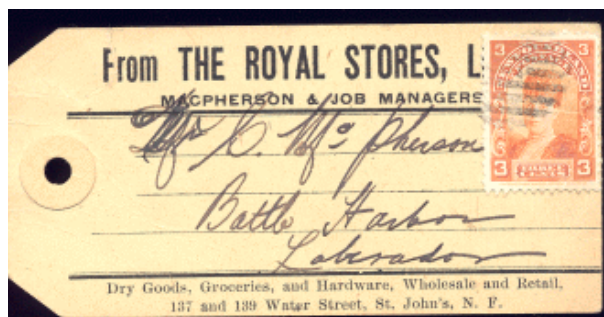 From THE ROYAL STORES, L
MACPHERSON & JOB MANAGERS
C. Mc pherson
Battle Harbor
Labrador
Dry Goods, Groceries, and Hardware, Wholesale and Retail,
137 and 139 Water Street, St. John's, N. F.
3 NEWFOUNDLAND 3
3 THREE CENTS 3